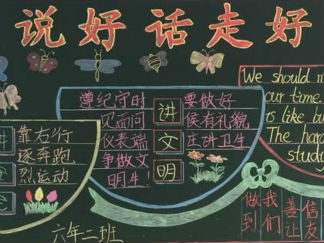 说好话走好
遵纪守时
见面问
仪表端
争做文
明生！
讲文明
要做好
候有礼貌
庄讲卫生
讲
靠右行
逐奔跑
烈运动
六年二班
We should m
our time.
is like bu
The hap
stud
做到
我们
善让
信友